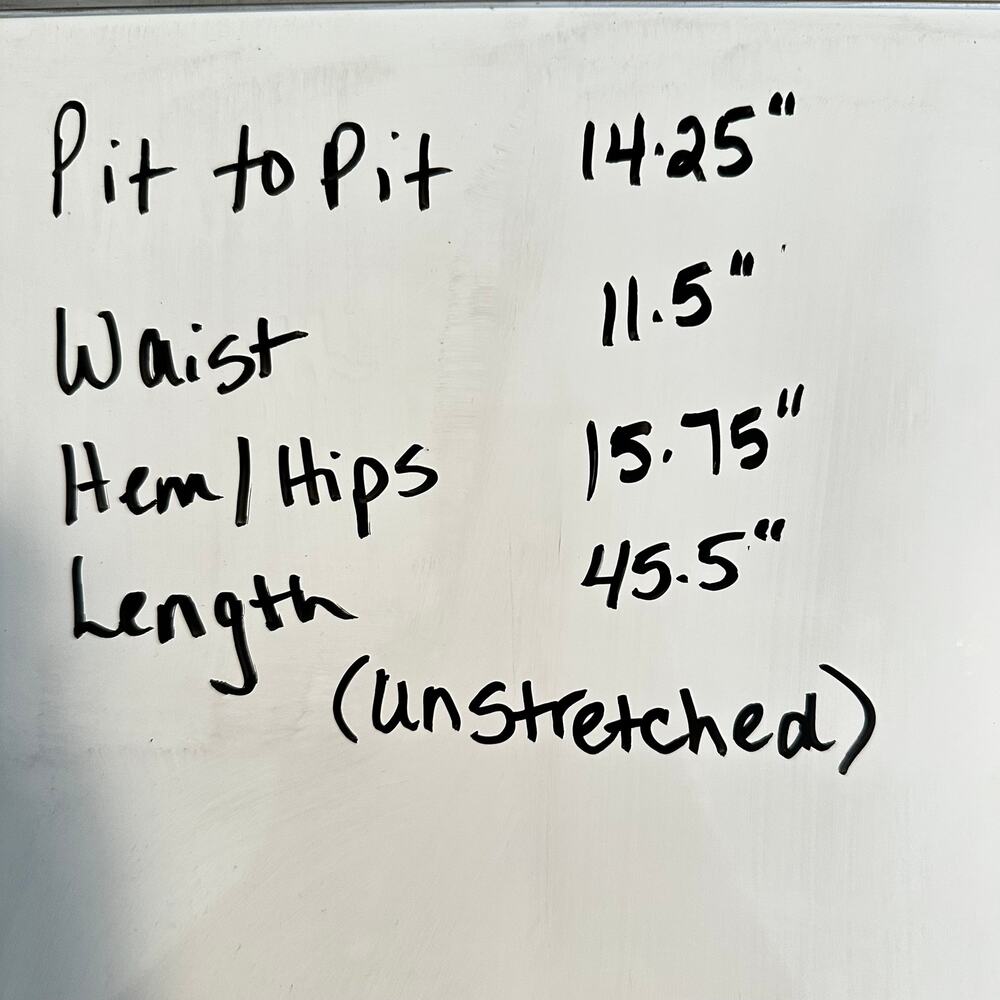 Pit to Pit 14.25"
Waist 11.5"
Hem/Hips 15.75"
Length 45.5"
(unstretched)